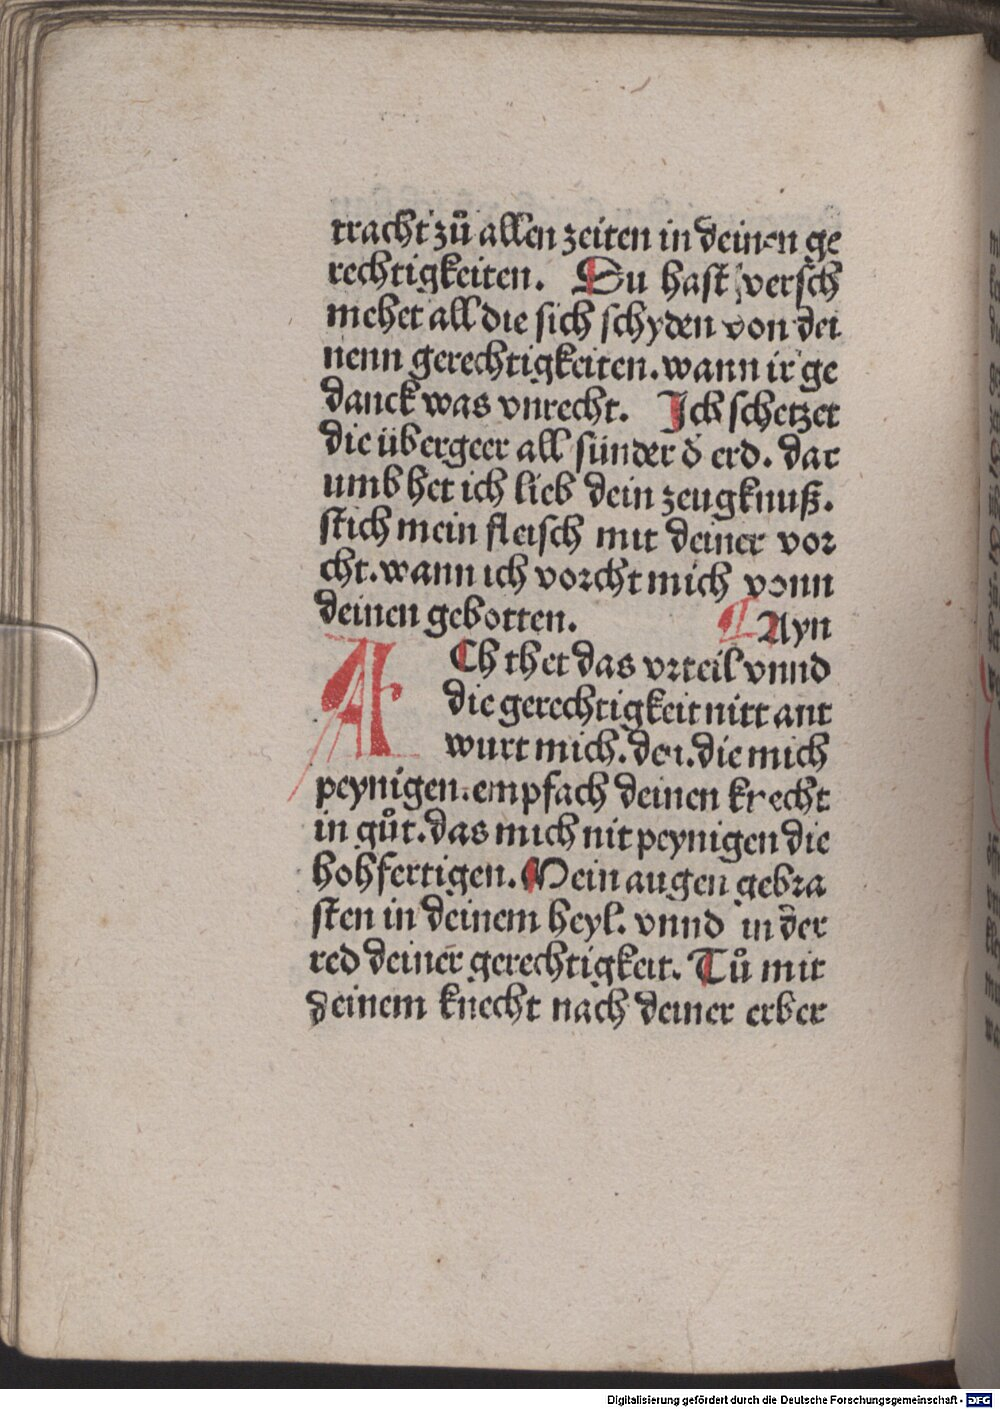 tracht zů allen zeiten in deinen ge
rechtigkeiten. Du hast versch
mehet all die sich schyden von dei
nenn gerechtigkeiten. wann ir ge
danck was vnrecht. Jch schetzet
die übergeer all sünder d̕ erd. dar
umb het ich lieb dein zeugknuß.
stich mein fleisch mit deiner vor
cht. wann ich vorcht mich vonn
deinen gebotten. Ayn
ACh thet das vrteil vnnd
die gerechtigkeit nitt ant
wurt mich. den. die mich
peynigen. empfach deinen knecht
in gůt. das mich nit peynigen die
hohfertigen. Mein augen gebra
sten in deinem heyl. vnnd in der
red deiner gerechtigkeit. Tů mit
deinem knecht nach deiner erber
Digitalisierung gefördert durch die Deutsche Forschungsgemeinschaft - DFG